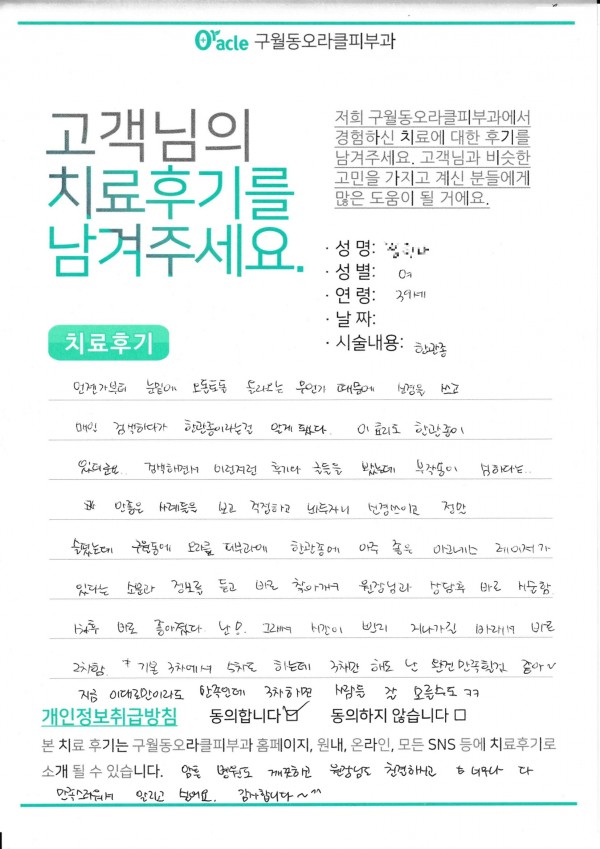 Oracle 구월동오라클피부과
고객님의
치료후기를
남겨주세요.
저희 구월동오라클피부과에서
경험하신 치료에 대한 후기를
남겨주세요. 고객님과 비슷한
고민을 가지고 계신 분들에게
많은 도움이 될 거에요.
· 성 명:
· 성 별: 여
· 연 령: 39세
· 날 짜:
· 시술내용: 한관종
치료후기
언젠가부터 눈밑에 오돌토돌 올라오는 무언가 때문에 신경을 쓰고
매일 검색하다가 한관종이라는걸 알게 됐다. 이효리도 한관종이
있더군요.. 검색하면서 이런저런 후기와 글들을 봤는데 부작용이 심하다는..
안좋은 사례들을 보고 걱정하고 놔두자니 신경쓰이고 정말
슬펐는데 구월동에 오라클 피부과에 한관종에 아주 좋은 아그네스 레이저가
있다는 소문과 정보를 듣고 바로 찾아가서 원장님과 상담후 바로 시술함.
1차후 바로 좋아졌다. 난!. 그래서 시간이 빨리 지나가길 바래서 바로
2차함. * 기본 3차에서 5차도 하는데 3차만 해도 난 완전 만족할걸 좋아
지금 이대로만이라도 만족인데 3차하면 사람들 감 모를수도 ㅋㅋ
개인정보취급방침 동의합니다 ☑ 동의하지 않습니다 □
본 치료 후기는 구월동오라클피부과 홈페이지, 원내, 온라인, 모든 SNS 등에 치료후기로
소개 될 수 있습니다. 암튼 병원도 깨끗하고 원장님도 친절하시고 너무나 다
만족스러워서 알리고 싶어요. 감사합니다~^^